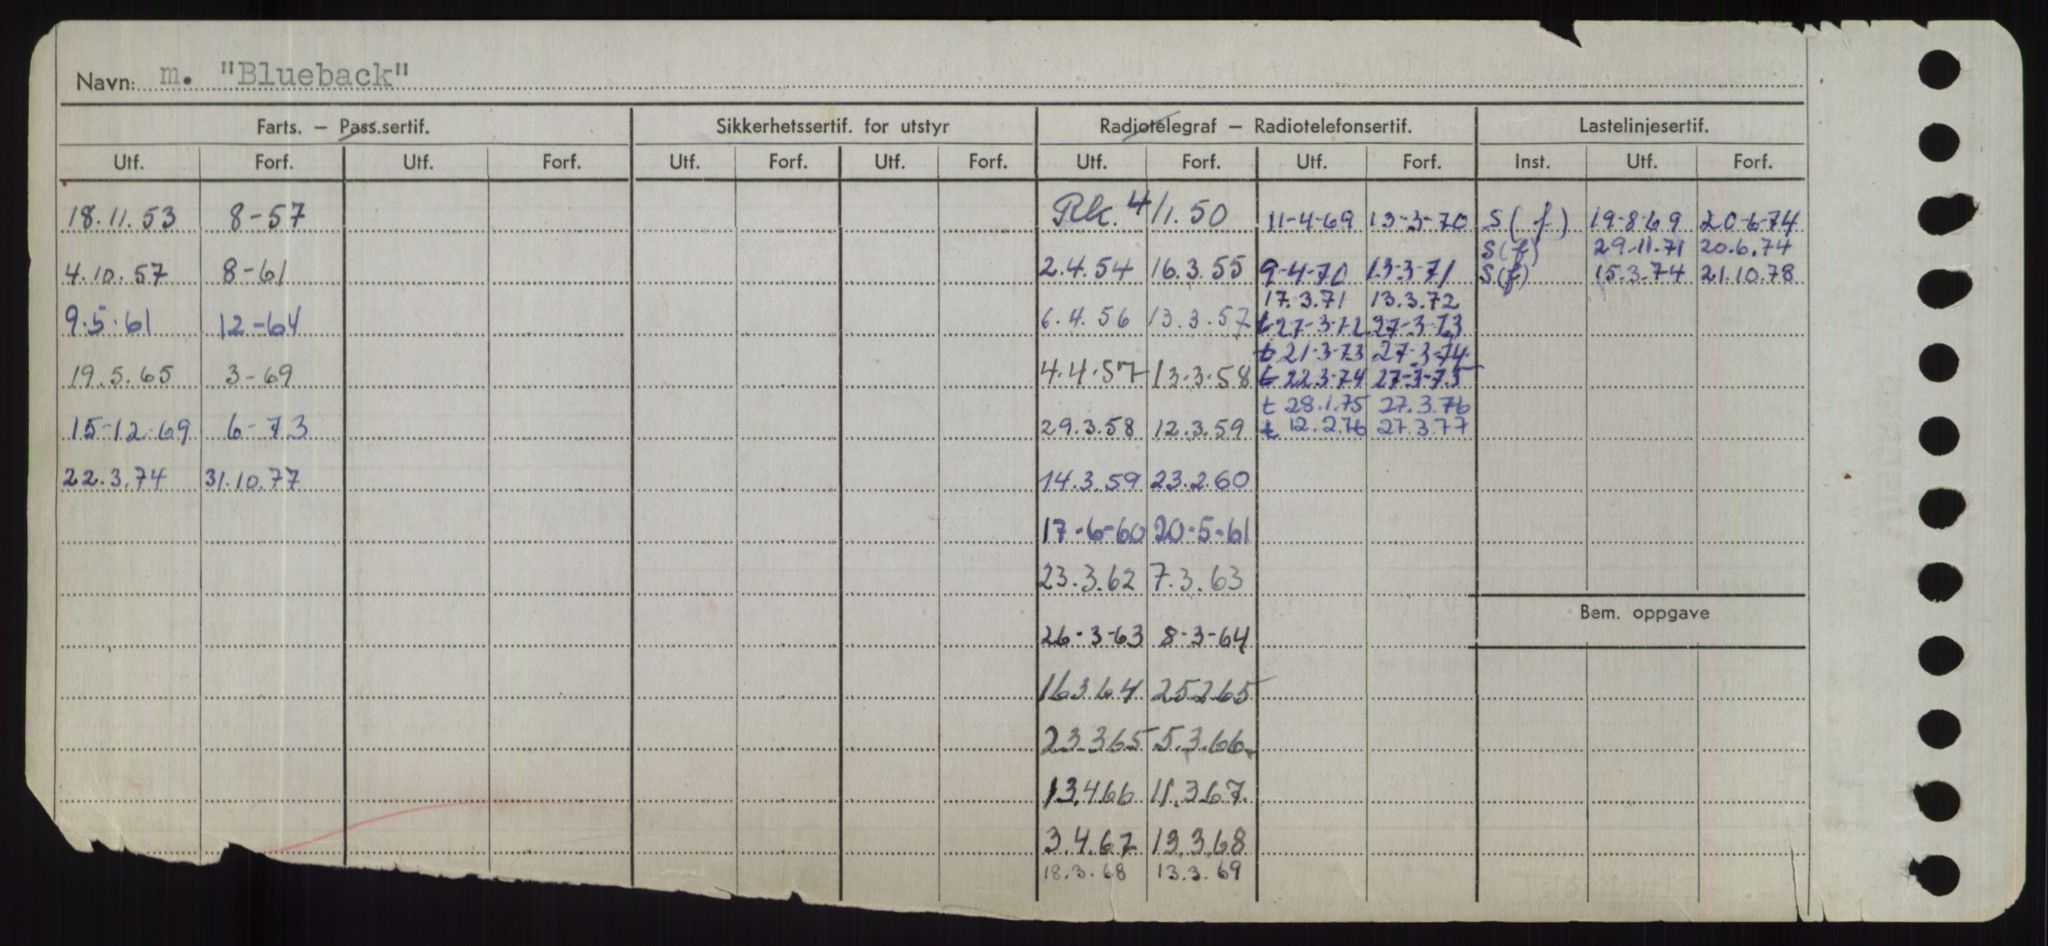 Navn: m. "Blueback"
Farts. – Pass.sertif. Sikkerhetssertif. for utstyr Radiotelegraf – Radiotelefonsertif. Lastelinjesertif.
Utf. Forf. Utf. Forf. Utf. Forf. Utf. Forf. Utf. Forf. Utf. Forf. Inst. Utf. Forf.
18.11.53 8-57 Rk. 4/1.50 11-4-69 13-3-70 S(f) 19-8-69 20-6-74
S(f) 29.11.71 20.6.74
4.10.57 8-61 2.4.54 16.3.55 9-4-70 13-3-71 S(f) 15.3.74 21.10.78
17.3.71 13.3.72
9.5.61 12-64 6.4.56 13.3.57 t 27-3-72 27-3-73
t 21-3-73 27-3-74
19.5.65 3-69 4.4.57 13.3.58 t 22.3-74 27-3-75
t 28.1.75 27.3.76
15-12-69 6-73 29.3.58 12.3.59 t 12.2.76 27.3.77
22.3.74 31.10.77 14.3.59 23.2.60
17-6-60 20-5-61
23.3.62 7.3.63
Bem. oppgave
26-3-63 8-3-64
16364 25265
23.365 5.3.66
13.466 11.367
3.4.67 13368
18.3.68 13.3.69